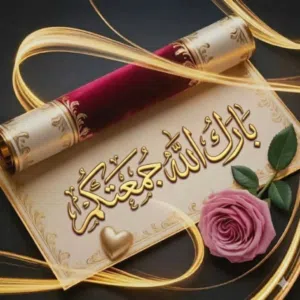 بارك الله جمعتكم